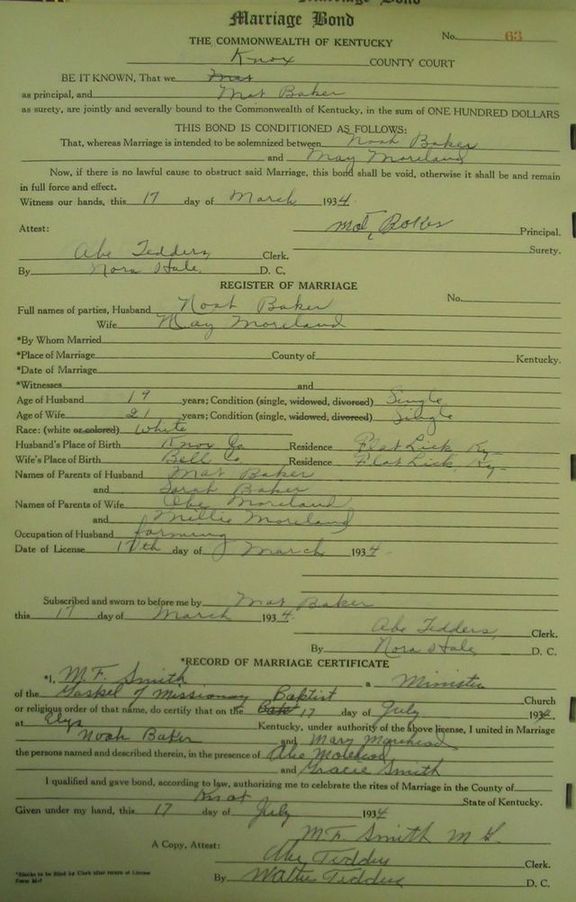 Marriage Bond
No. 63
THE COMMONWEALTH OF KENTUCKY
Knox COUNTY COURT
BE IT KNOWN, That we Mat
as principal, and Mat Baker
as surety, are jointly and severally bound to the Commonwealth of Kentucky, in the sum of ONE HUNDRED DOLLARS
THIS BOND IS CONDITIONED AS FOLLOWS:
That, whereas Marriage is intended to be solemnized between Noah Baker
and May Moreland
Now, if there is no lawful cause to obstruct said Marriage, this bond shall be void, otherwise it shall be and remain
in full force and effect.
Witness our hands, this 17 day of March 1934
Attest: Mat Baker Principal.
Surety.
Abe Tedders Clerk.
By Nora Hale D. C.
REGISTER OF MARRIAGE
No.
Full names of parties, Husband Noah Baker
Wife May Moreland
*By Whom Married
*Place of Marriage County of Kentucky.
*Date of Marriage
*Witnesses and
Age of Husband 19 years; Condition (single, widowed, divorced) Single
Age of Wife 21 years; Condition (single, widowed, divorced) Single
Race: (white or colored) White
Husband's Place of Birth Knox Co Residence Flat Lick Ky
Wife's Place of Birth Bell Co Residence Flat Lick Ky
Names of Parents of Husband Mat Baker
and Sarah Baker
Names of Parents of Wife Abe Moreland
and Millie Moreland
Occupation of Husband farming
Date of License 17th day of March 1934
Subscribed and sworn to before me by Mat Baker
this 17 day of March 1934.
Abe Tedders, Clerk.
By Nora Hale D. C.
*RECORD OF MARRIAGE CERTIFICATE
*I, M.F. Smith a Minister
of the Gospel of Missionary Baptist Church
or religious order of that name, do certify that on the 17 day of July 193
at Elys Kentucky, under authority of the above license, I united in Marriage
Noah Baker and Mary
the persons named and described therein, in the presence of Abe
and Gracie Smith
I qualified and gave bond, according to law, authorizing me to celebrate the rites of Marriage in the County of
Knox State of Kentucky.
Given under my hand, this 17 day of July 1934
M.F. Smith M G.
A Copy, Attest: Abe Tedders Clerk.
By Walter Tedders D. C.
*Blanks to be filled by Clerk after return of License